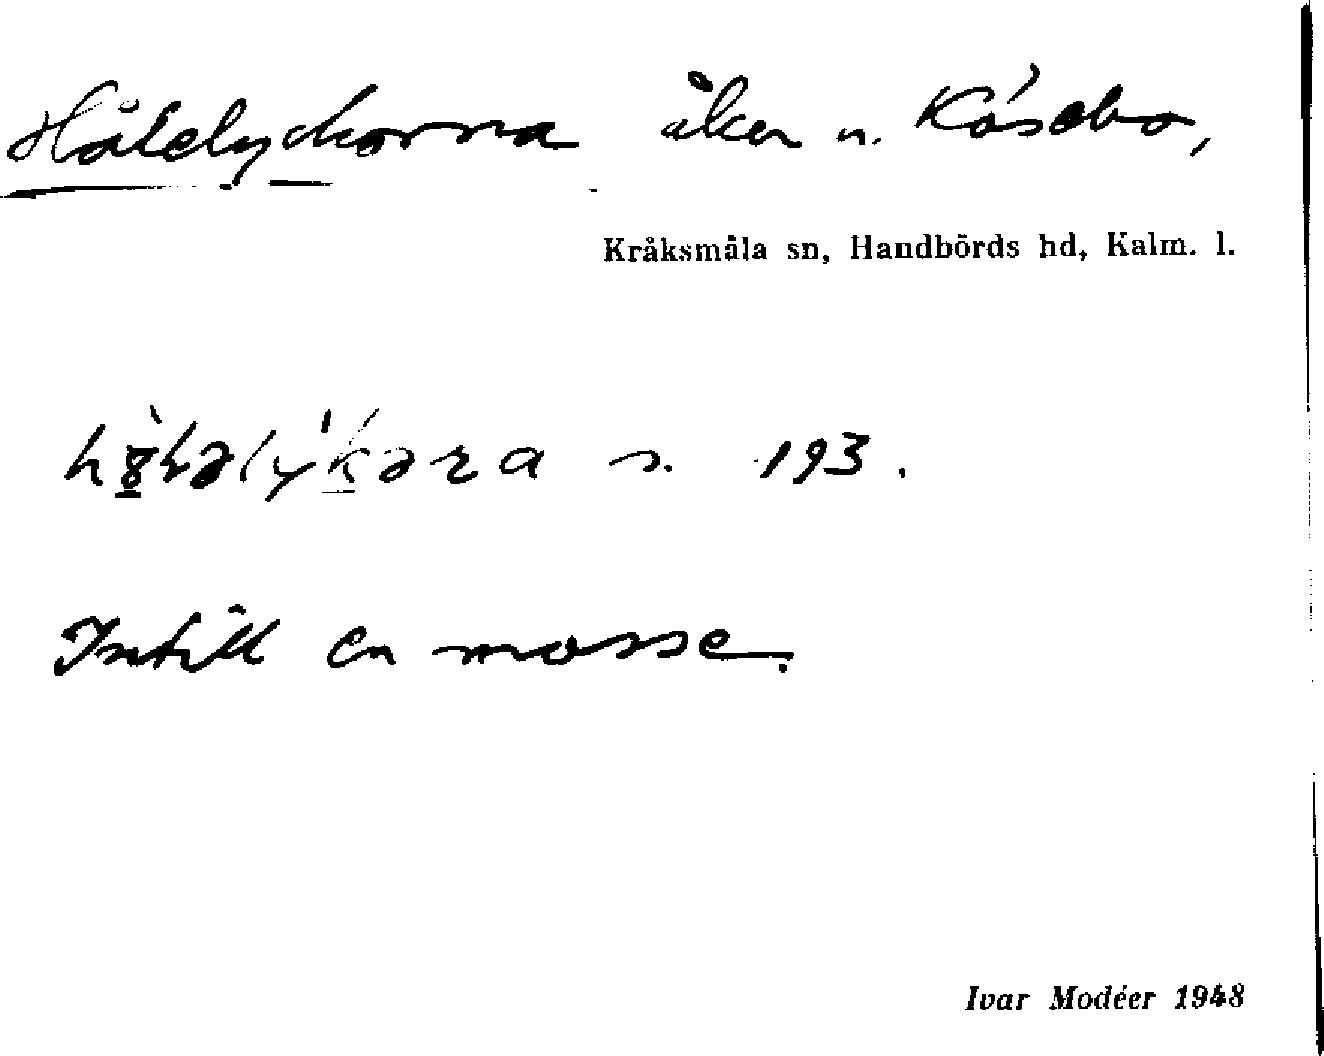 Håtelyckorna åker n. Kåsebo,
Kråksmåla sn, Handbörds hd, Kalm. l.
s. 193.
Intill en mosse.
Ivar Modéer 1948